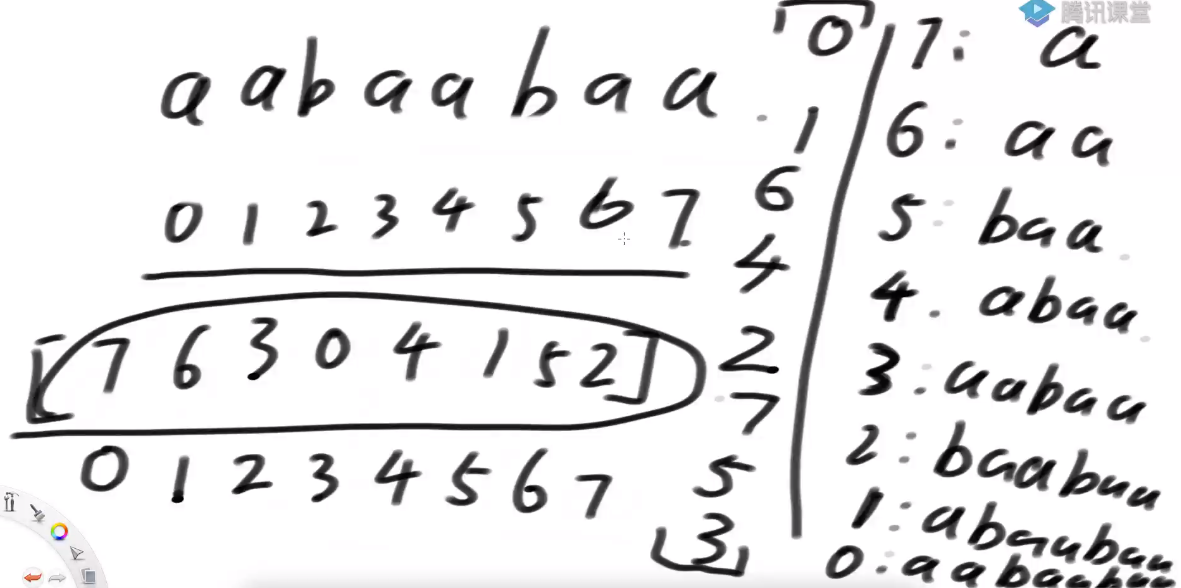 腾讯课堂
a a b a a b a a
0 1 2 3 4 5 6 7
[ 7 6 3 0 4 1 5 2 ]
0 1 2 3 4 5 6 7
0
1
6
4
2
7
5
3
7: a
6: aa
5: baa
4: abaa
3: aabaa
2: baabaa
1: abaabaa
0: aabaabaa